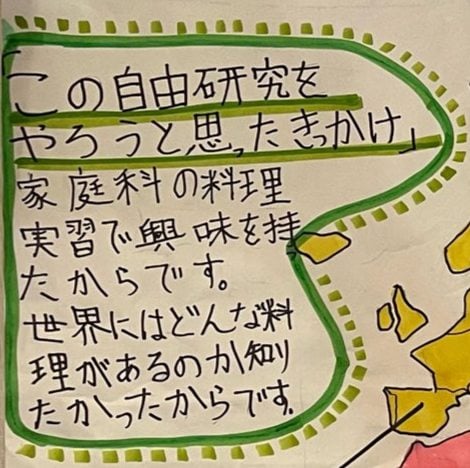 「この自由研究を
やろうと思ったきっかけ」
家庭科の料理
実習で興味を持
たからです。
世界にはどんな料
理があるのか知り
たかったからです。